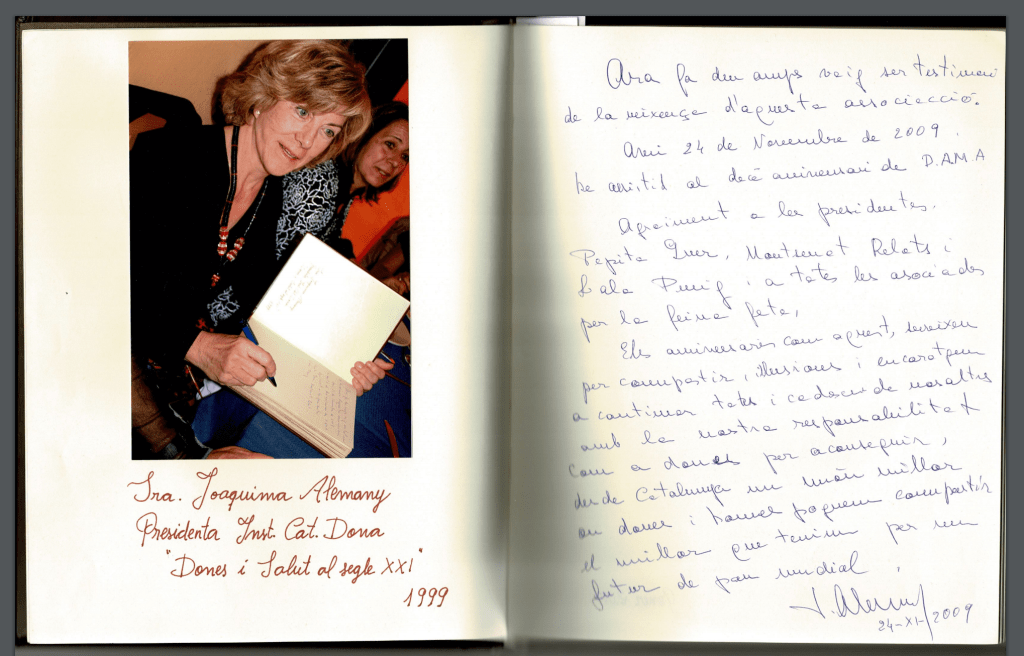 Sra. Joaquima Alemany
Presidenta Inst. Cat. Dona
"Dones i Salut al segle XXI"
1999
Ara fa deu anys vaig ser testimoni
de la neixença d'aquesta associacció.
Avui 24 de Novembre de 2009.
he assistit al decè aniversari de D.A.M.A
Agraiment a les presidentes,
Pepita Montserrat Relats i
Lala Puig i a totes les asociades
per la feina feta,
Els aniversaris com aquest, mereixen
per compartir, ilusions i encoratgem
a continuar totes i cadascu de nosaltres
amb la nostra responsabilitat
com a dones per aconseguir,
des de Catalunya un món millor
on dones i homes poguem compartir
el millor que tenim per un
futur de pau mundial.
J. Alemany
24-XI-/2009